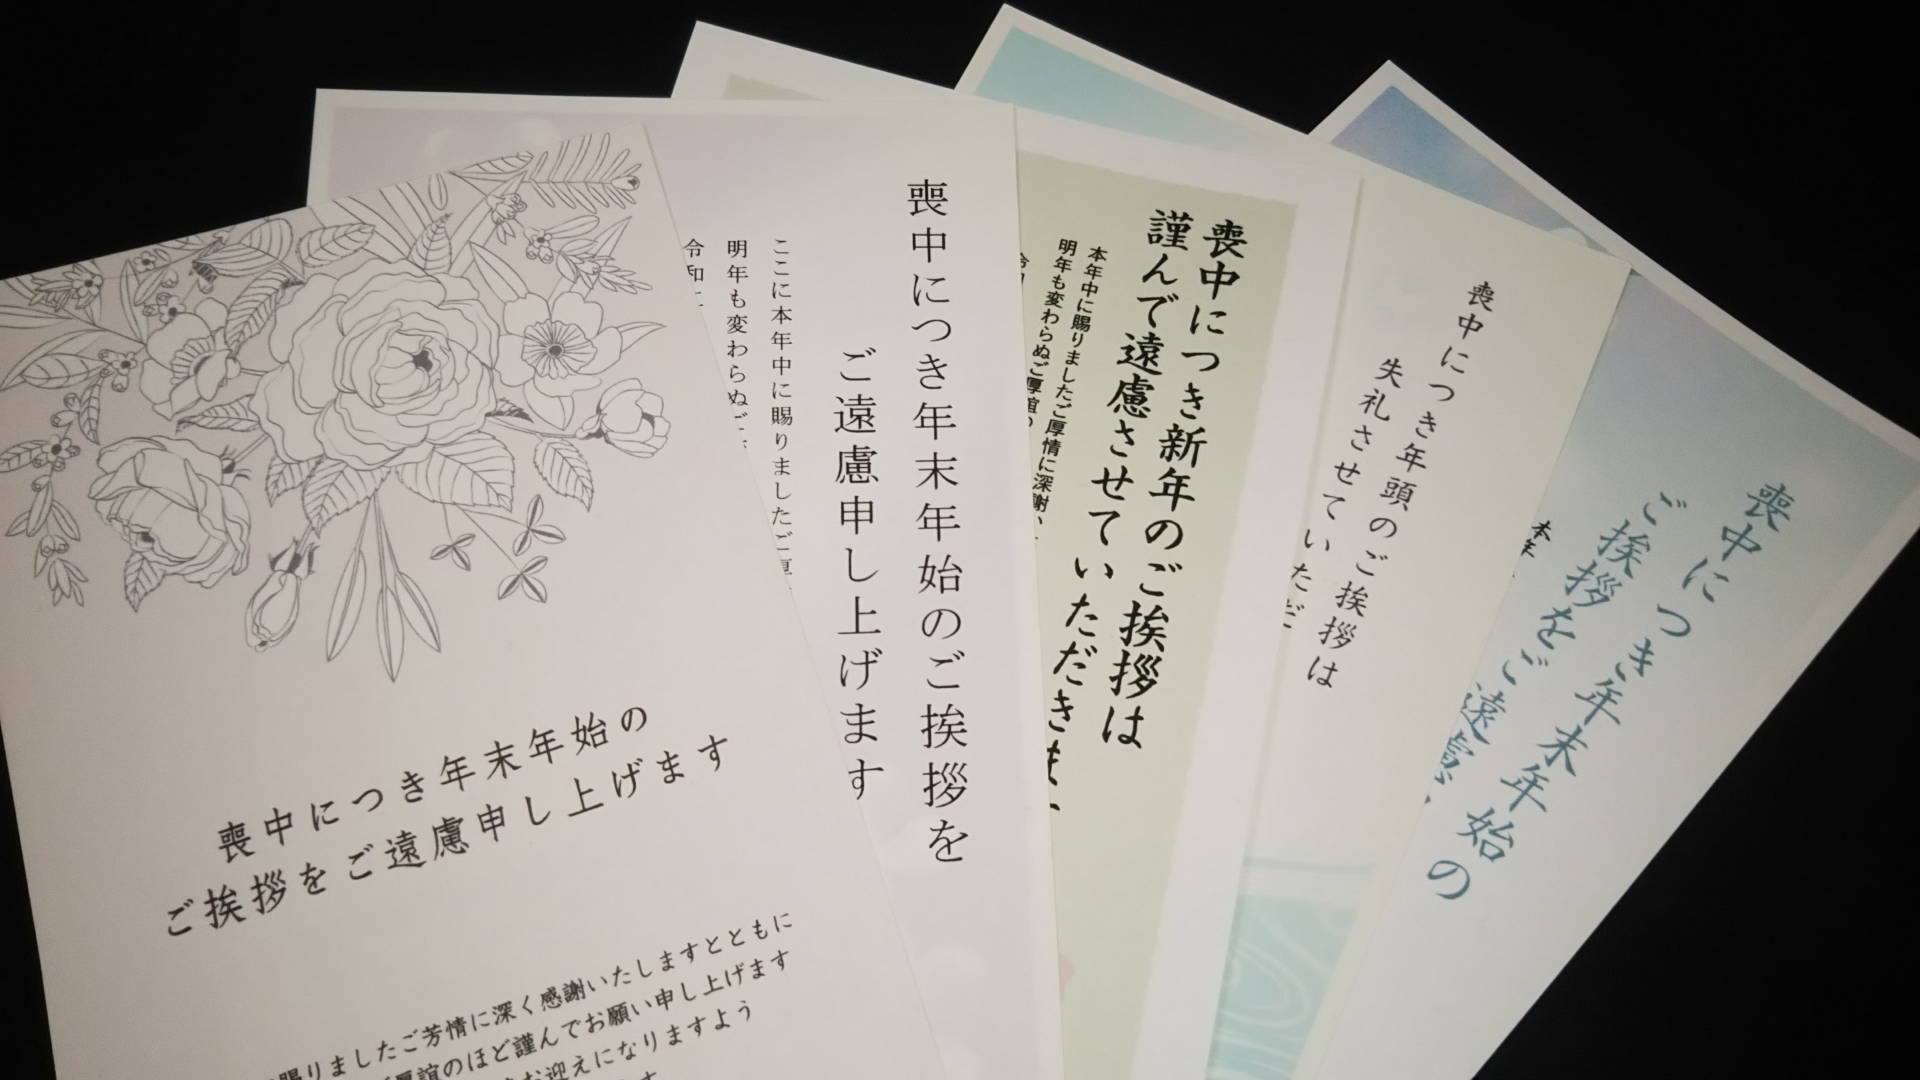 喪中につき年末年始の
ご挨拶をご遠慮申し上げます
賜りましたご芳情に深く感謝いたしますとともに
厚誼のほど謹んでお願い申し上げます
お迎えになりますよう
喪中につき年末年始のご挨拶を
ご遠慮申し上げます
ここに本年中に賜りましたご厚
明年も変わらぬご
令和
喪中につき新年のご挨拶は
謹んで遠慮させていただきま
本年中に賜りましたご厚情に深謝い
明年も変わらぬご厚誼の
喪中につき年頭のご挨拶は
失礼させていただ
喪中につき年末年始の
ご挨拶をご遠慮
本年